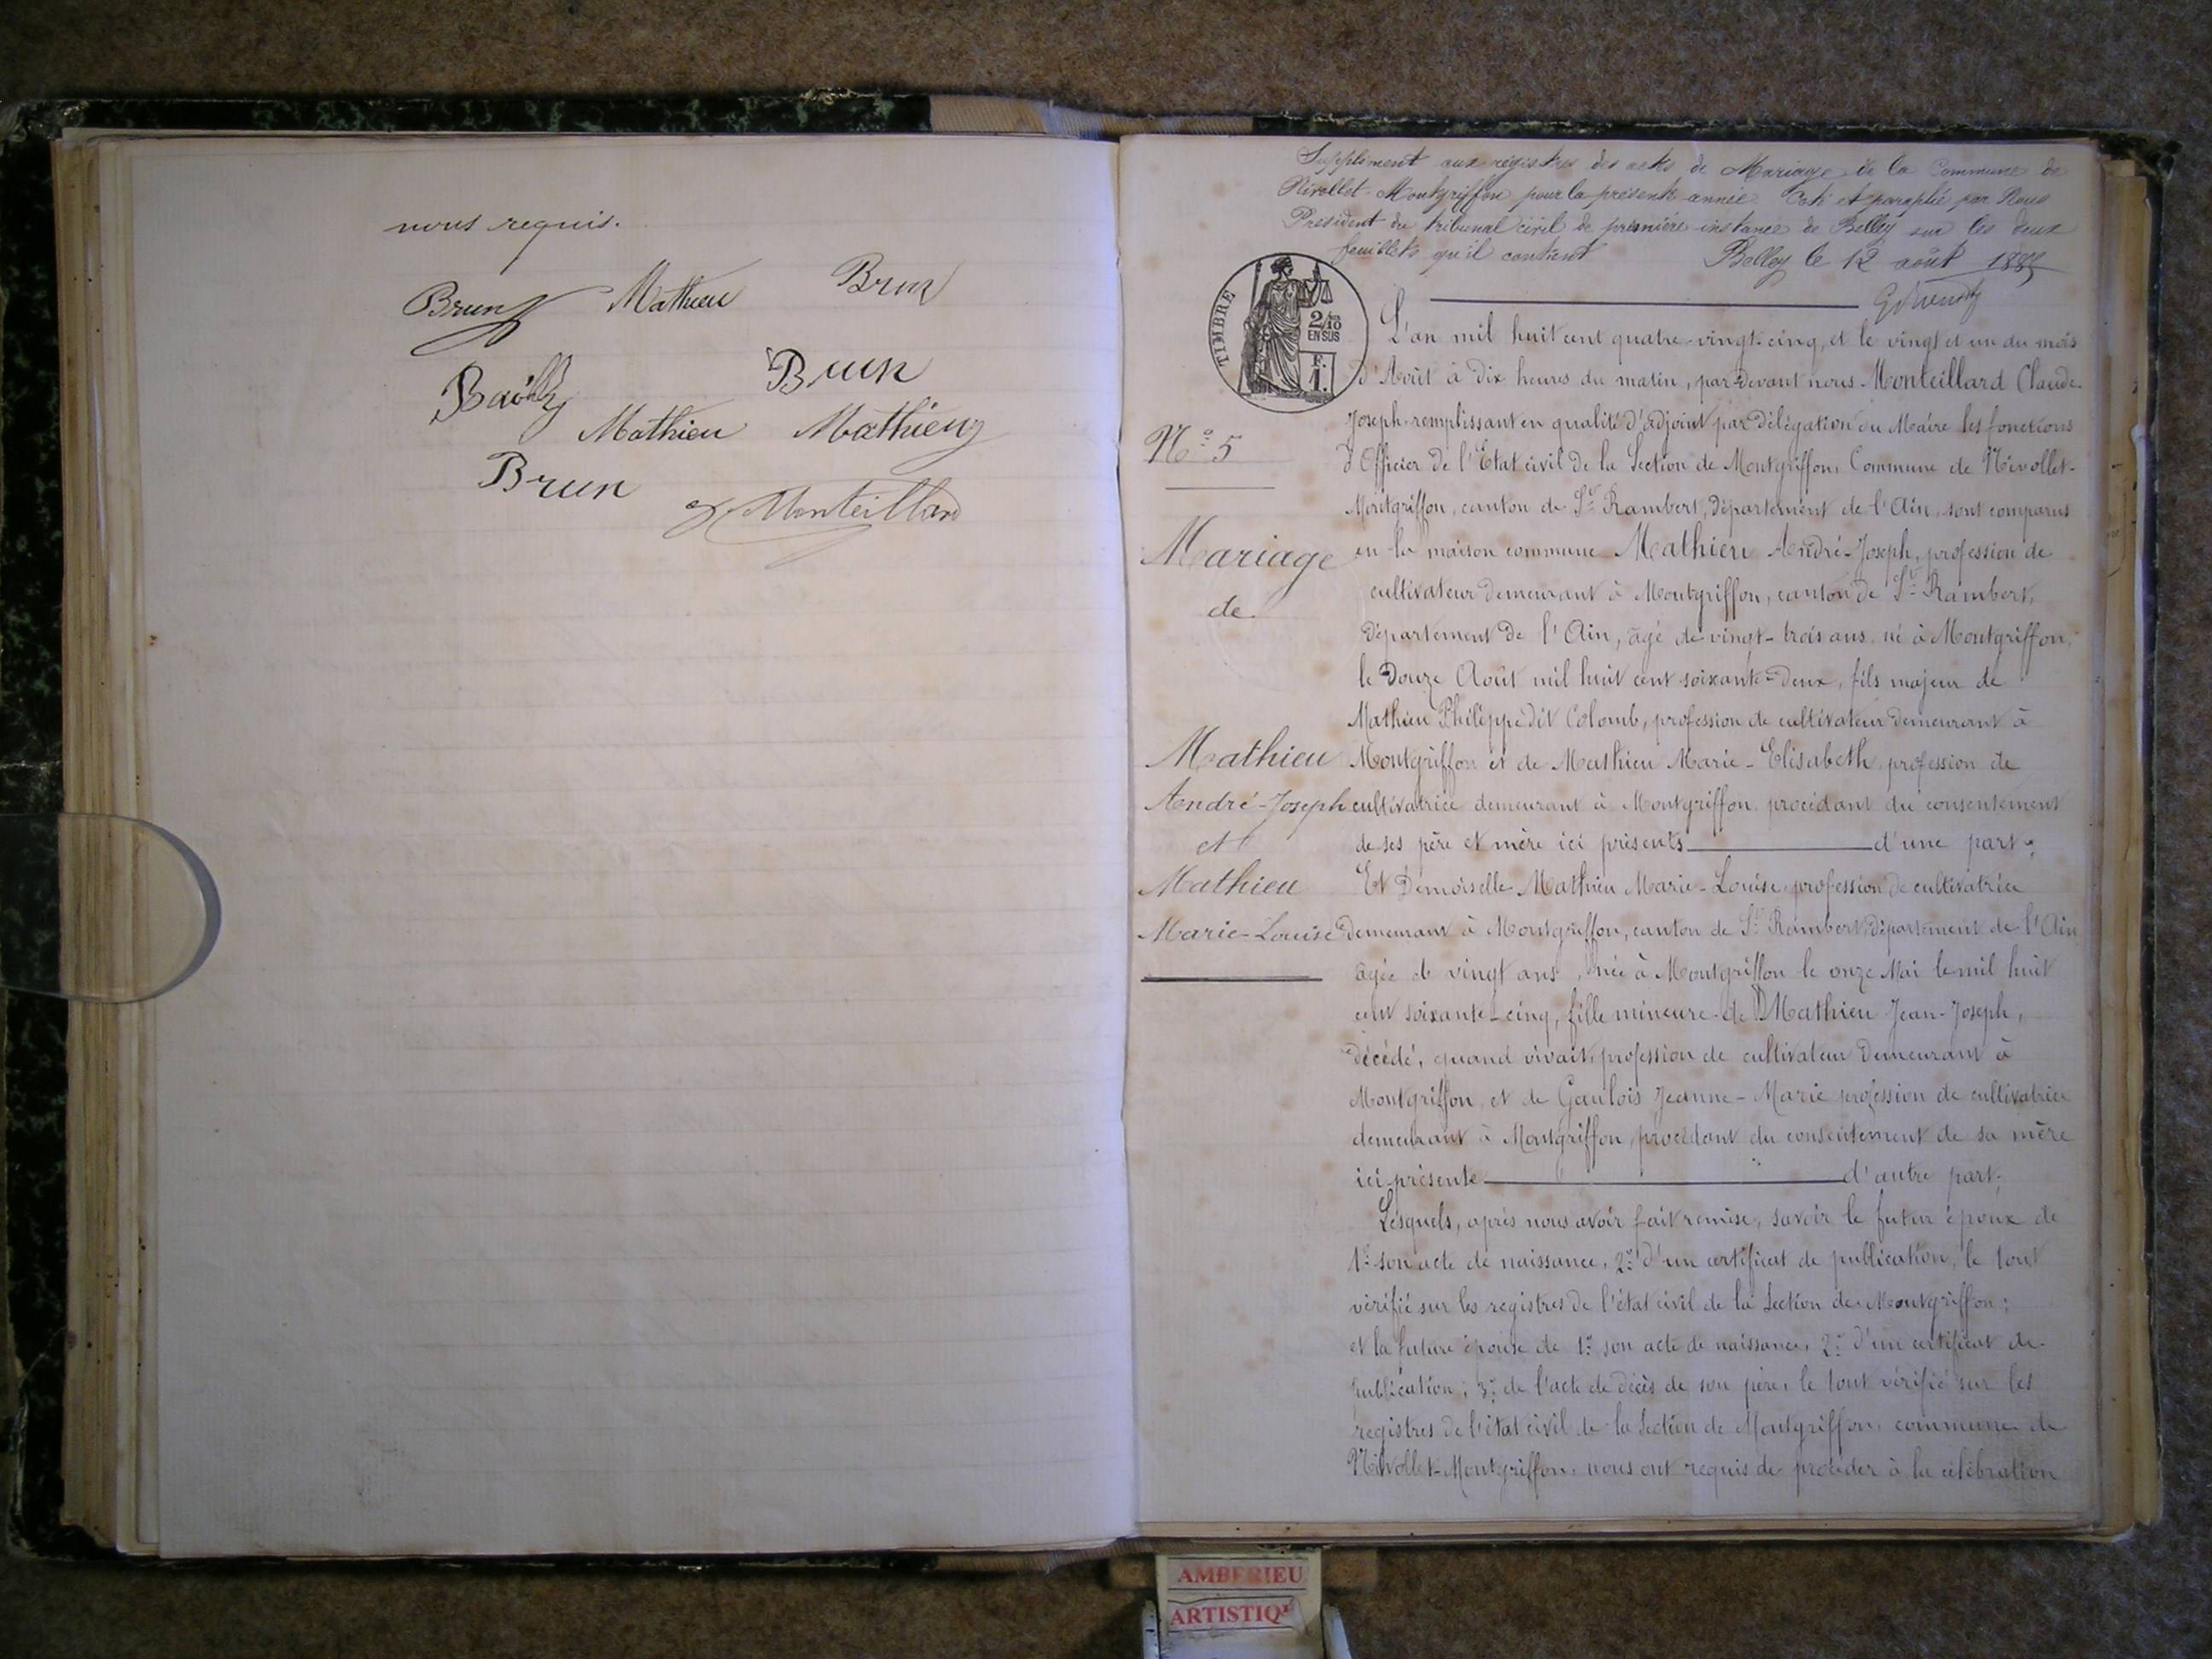 nous requis.
Brun Mathieu Brun
Bailly Brun
Mathieu Mathieu
Brun
Monteillard
Supplément aux registres des actes de Mariage de la Commune de
Nivollet-Montgriffon pour la présente année Coté et paraphé par Nous
Président du tribunal civil de première instance de Belley sur les deux
feuillets qu'il contient Belley le 12 août 1885
TIMBRE
2/10
EN SUS
F.
1.
L'an mil huit cent quatre-vingt-cinq, et le vingt et un du mois
d'Août à dix heures du matin, par devant nous Monteillard Claude-
Joseph remplissant en qualité d'adjoint par délégation du Maire les fonctions
d'Officier de l'Etat civil de la Section de Montgriffon, Commune de Nivollet-
Montgriffon, canton de St Rambert, département de l'Ain, sont comparus
en la maison commune Mathieu André-Joseph, profession de
cultivateur demeurant à Montgriffon, canton de St Rambert,
département de l'Ain, âgé de vingt-trois ans, né à Montgriffon,
le douze Août mil huit cent soixante-deux, fils majeur de
Mathieu Philippe dit Colomb, profession de cultivateur demeurant à
Montgriffon et de Mathieu Marie-Elisabeth, profession de
cultivatrice demeurant à Montgriffon, procédant du consentement
de ses père et mère ici présents d'une part;
Et Demoiselle Mathieu Marie-Louise, profession de cultivatrice
demeurant à Montgriffon, canton de St Rambert, département de l'Ain
âgée de vingt ans, née à Montgriffon le onze Mai le mil huit
cent soixante-cinq, fille mineure de Mathieu Jean-Joseph,
décédé, quand vivait, profession de cultivateur demeurant à
Montgriffon, et de Gaulois Jeanne-Marie profession de cultivatrice
demeurant à Montgriffon, procédant du consentement de sa mère
ici présente d'autre part;
Lesquels, après nous avoir fait remise, savoir le futur époux de
1º son acte de naissance, 2º d'un certificat de publication, le tout
vérifié sur les registres de l'état civil de la Section de Montgriffon;
et la future épouse de 1º son acte de naissance, 2º d'un certificat de
publication; 3º de l'acte de décès de son père, le tout vérifié sur les
registres de l'état civil de la Section de Montgriffon, commune de
Nivollet-Montgriffon, nous ont requis de procéder à la célébration
Nº 5
Mariage
de
Mathieu
André-Joseph
et
Mathieu
Marie-Louise
AMBERIEU
ARTISTIQ